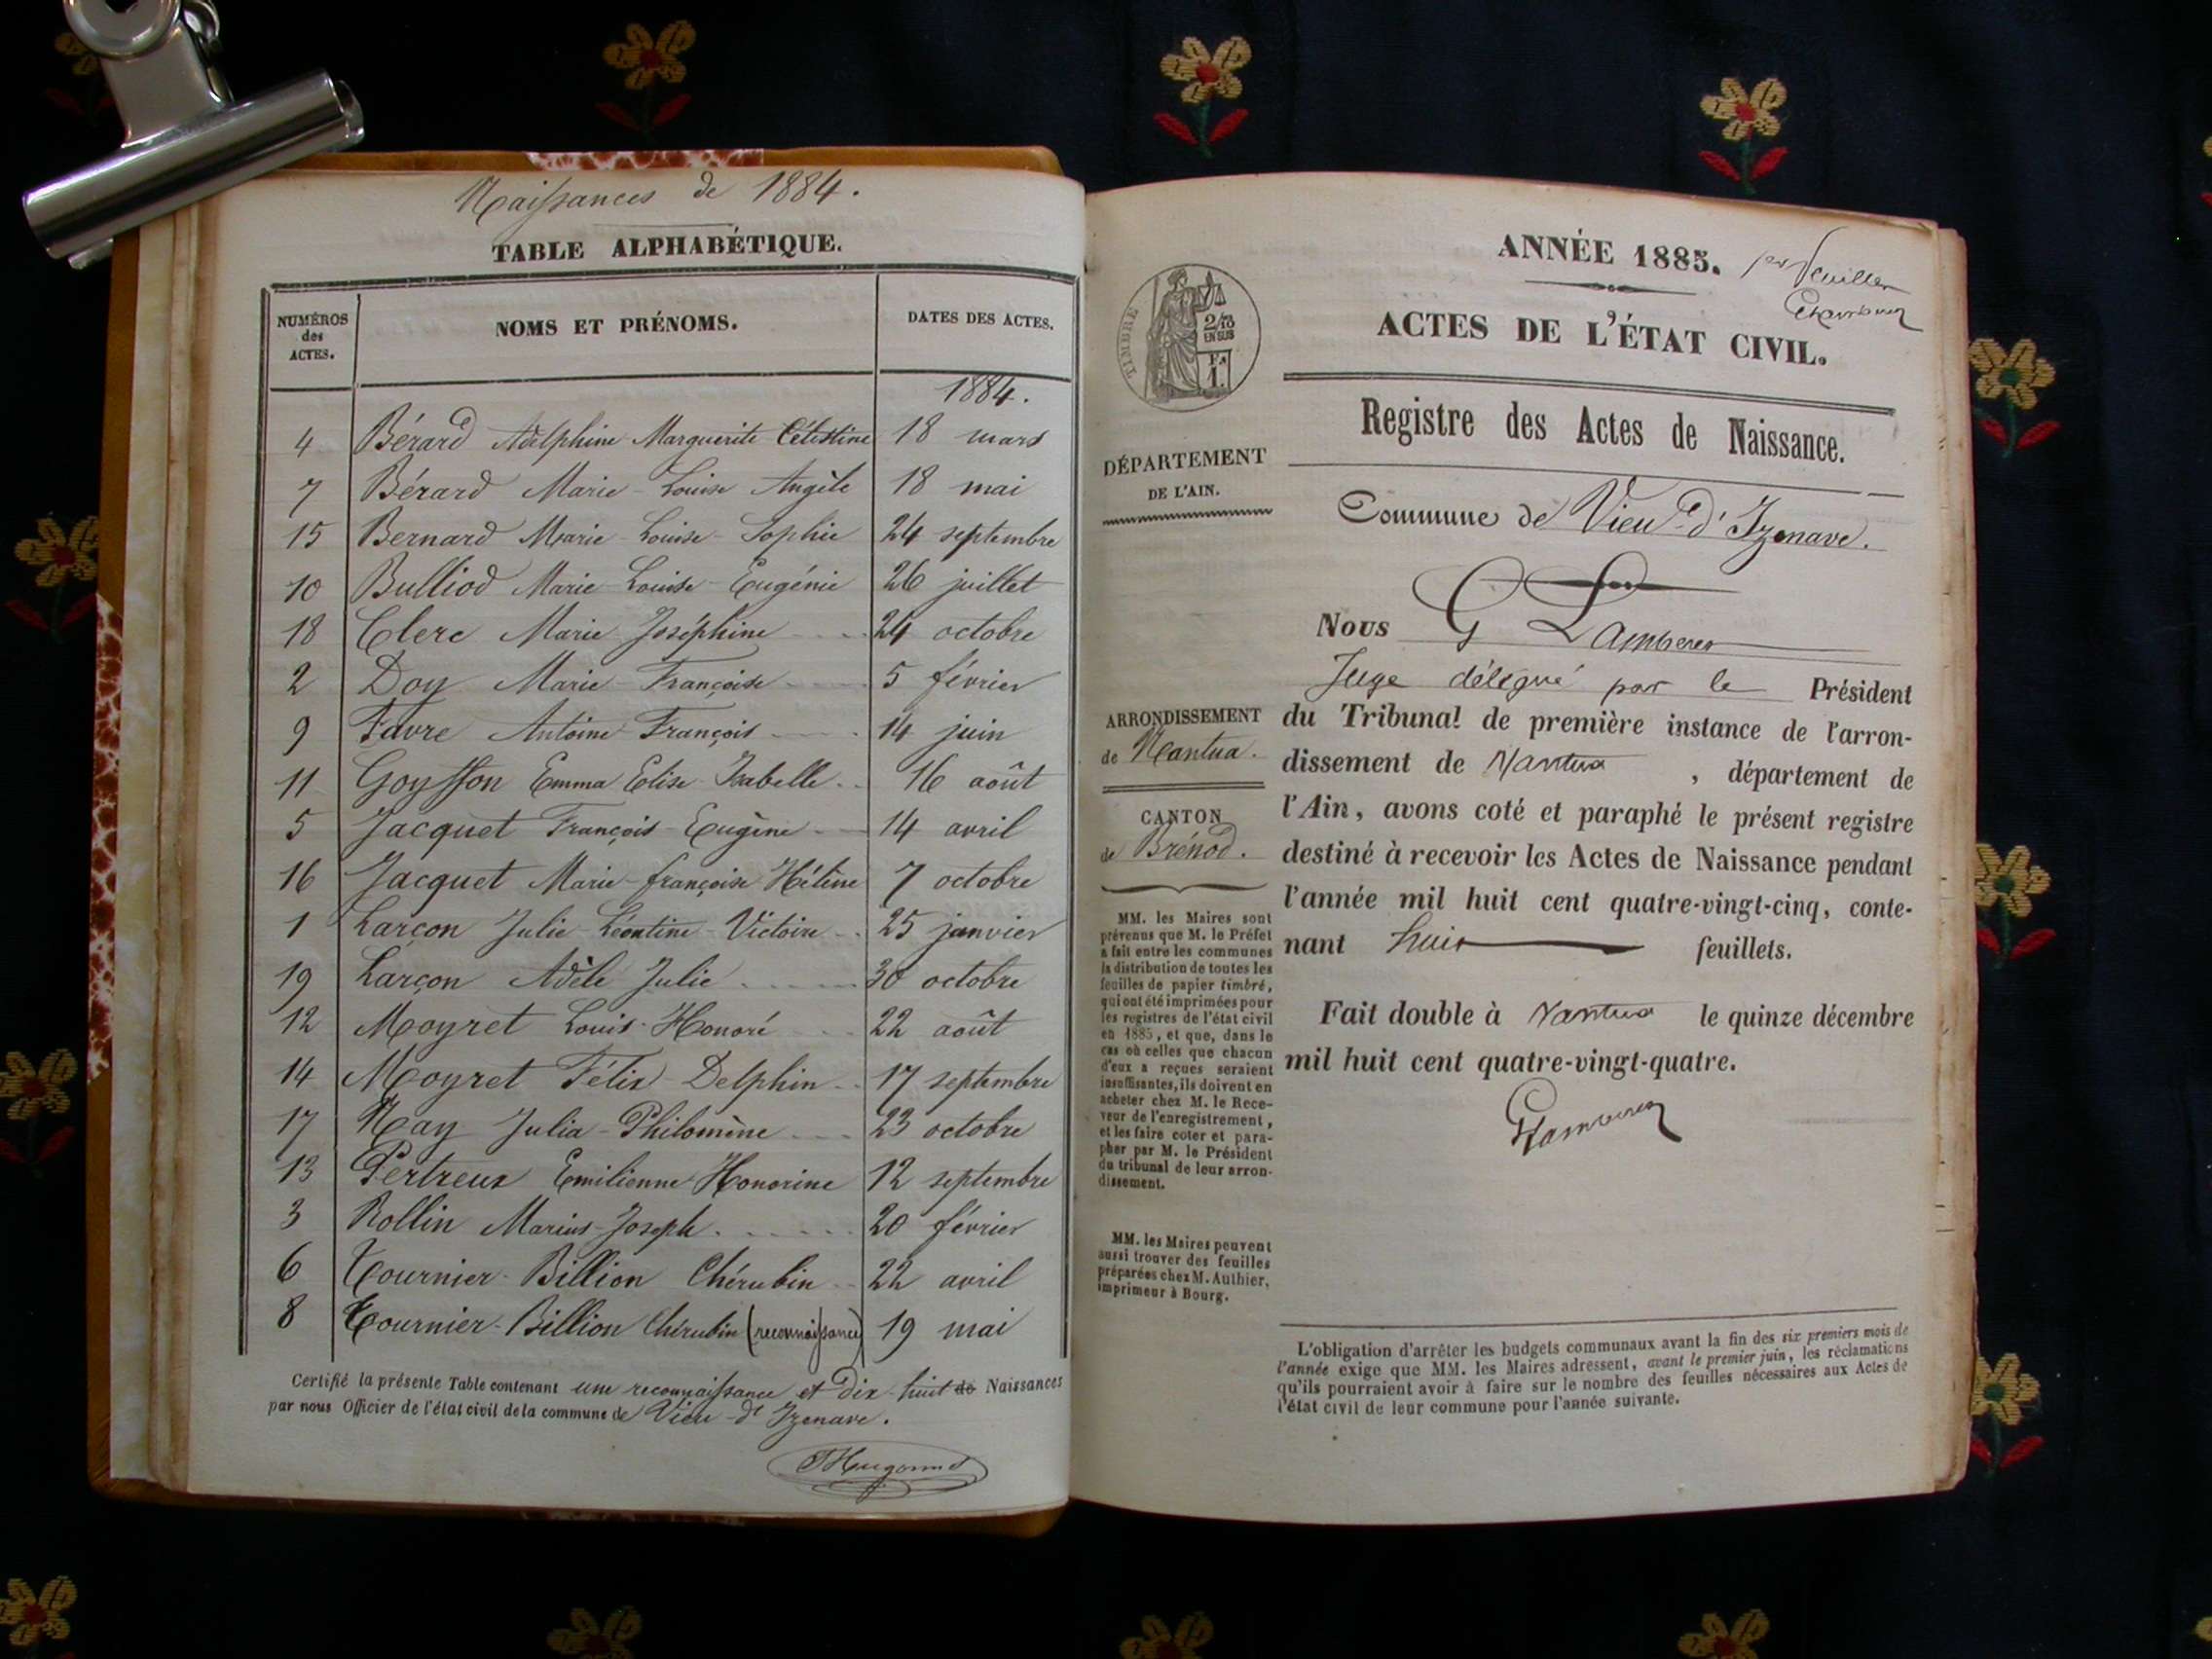 Naissances de 1884.
TABLE ALPHABÉTIQUE.
NUMÉROS
des
ACTES.
NOMS ET PRÉNOMS.
DATES DES ACTES.
1884.
4 Bérard Adelphine Marguerite Célestine 18 mars
7 Bérard Marie-Louise Angèle 18 mai
15 Bernard Marie-Louise-Sophie 24 septembre
10 Bulliod Marie-Louise-Eugénie 26 juillet
18 Clerc Marie Joséphine 24 octobre
2 Doy Marie-Françoise 5 février
9 Favre Antoine-François 14 juin
11 Goyffon Emma Elise-Isabelle 16 août
5 Jacquet François-Eugène 14 avril
16 Jacquet Marie-françoise Hélène 7 octobre
1 Larçon Julie-Léontine-Victoire 25 janvier
19 Larçon Adèle Julie 30 octobre
12 Moyret Louis-Honoré 22 août
14 Moyret Félix-Delphin 17 septembre
17 Nay Julia-Philomène 23 octobre
13 Pertreux Emilienne Honorine 12 septembre
3 Rollin Marius-Joseph 20 février
6 Tournier-Billion Chérubin 22 avril
8 Tournier-Billion Chérubin (reconnaissance) 19 mai
Certifié la présente Table contenant une reconnaissance et dix-huit de Naissances
par nous Officier de l'état civil de la commune de Vieu-d'Izenave.
ANNÉE 1885.
ACTES DE L'ÉTAT CIVIL.
TIMBRE
2/10
EN SUS
1
Registre des Actes de Naissance.
DÉPARTEMENT
DE L'AIN.
Commune de Vieu-d'Izenave.
Nous G Lambert
Juge délégué par le Président
du Tribunal de première instance de l'arron-
dissement de Nantua, département de
l'Ain, avons coté et paraphé le présent registre
destiné à recevoir les Actes de Naissance pendant
l'année mil huit cent quatre-vingt-cinq, conte-
nant huit feuillets.
Fait double à Nantua le quinze décembre
mil huit cent quatre-vingt-quatre.
ARRONDISSEMENT
de Nantua.
CANTON
de Brénod.
MM. les Maires sont
prévenus que M. le Préfet
a fait entre les communes
la distribution de toutes les
feuilles de papier timbré,
qui ont été imprimées pour
les registres de l'état civil
en 1885, et que, dans le
cas où celles que chacun
d'eux a reçues seraient
insuffisantes, ils doivent en
acheter chez M. le Rece-
veur de l'enregistrement,
et les faire coter et para-
pher par M. le Président
du tribunal de leur arron-
dissement.
MM. les Maires peuvent
aussi trouver des feuilles
préparées chez M. Authier,
imprimeur à Bourg.
L'obligation d'arrêter les budgets communaux avant la fin des six premiers mois de
l'année exige que MM. les Maires adressent, avant le premier juin, les réclamations
qu'ils pourraient avoir à faire sur le nombre des feuilles nécessaires aux Actes de
l'état civil de leur commune pour l'année suivante.